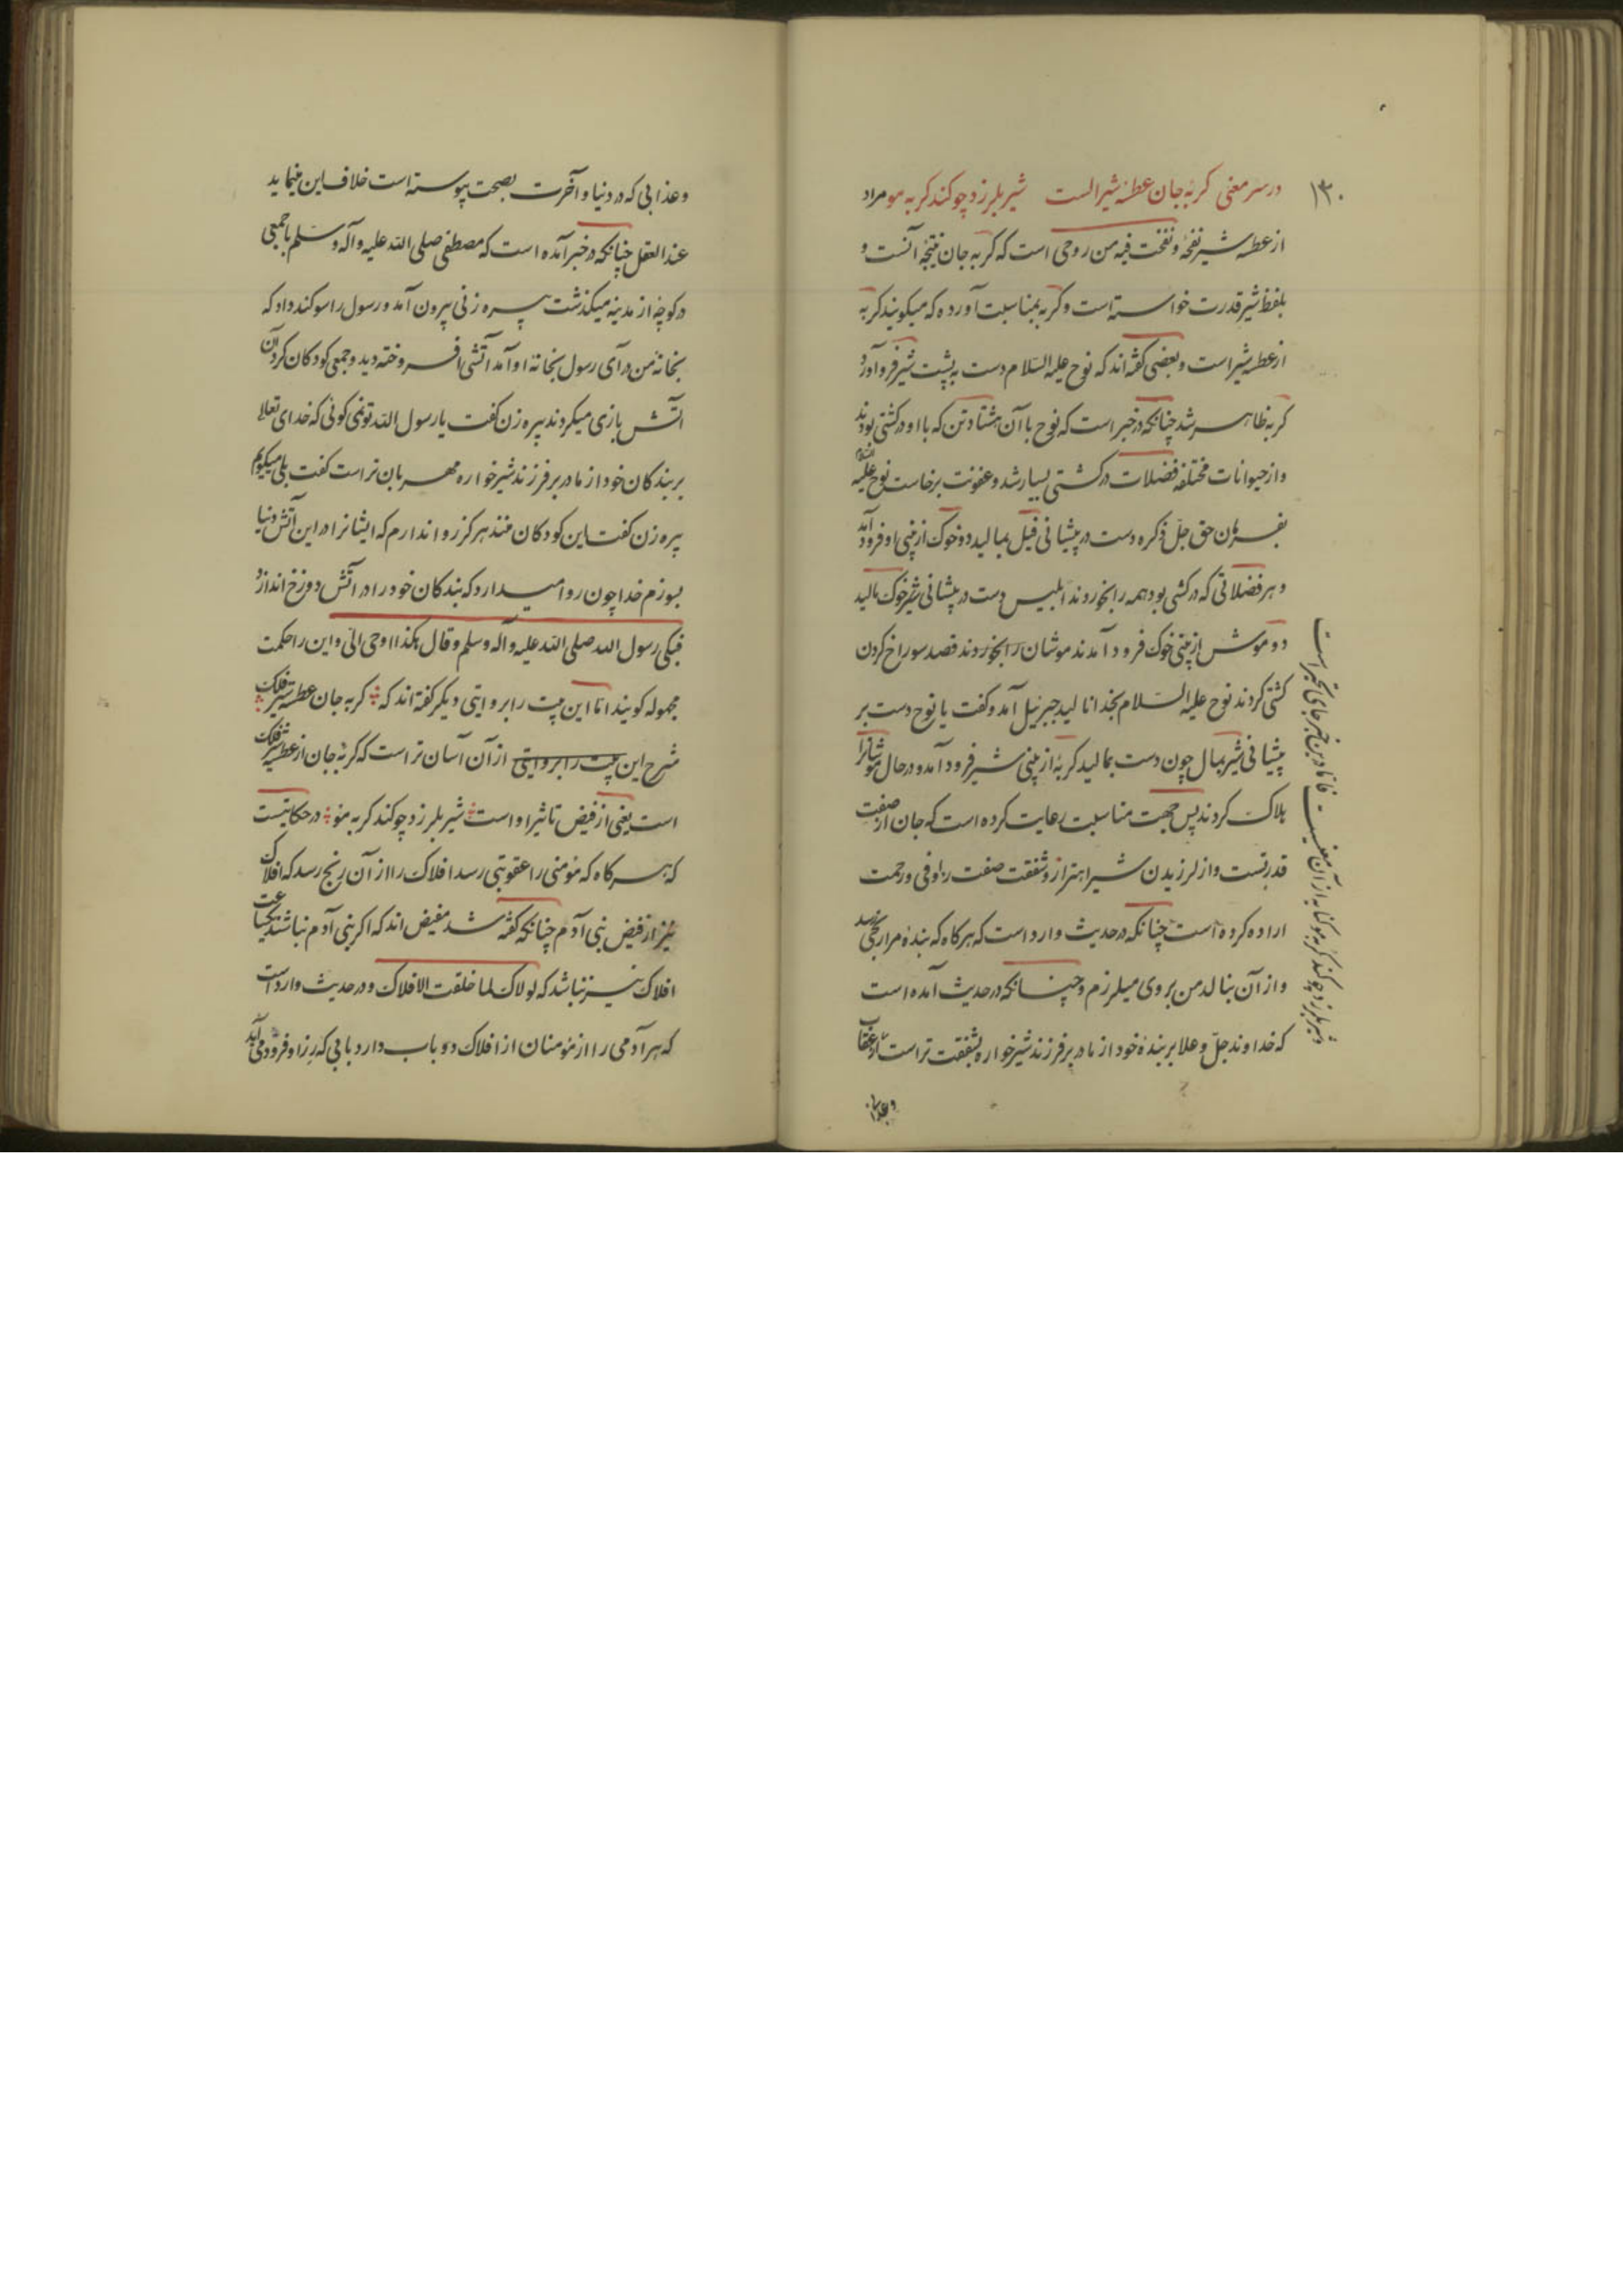 ۱۳۰
در سر معنی گربه جان عطسهٔ شیر الست شیر بلرزد چو کند گربه مو مراد
از عطسه شیر نفخهٔ و نفخت فیه من روحی است که گربه جان نتیجه آنست و
بلفظ شیر قدرت خواسته است و گربه بمناسبت آورده که میکویند کربه
از عطسه شیر است و بعضی کفته‌اند که نوح علیه السلام دست به پشت شیر فرو آورد
کربه ظاهر شد چنانکه در خبر است که نوح با آن هشتاد تن که با او در کشتی بودند
و از حیوانات مختلفه فضلات در کشتی بسیار شد و عفونت برخاست نوح علیه السلام
بفرمان حق جل ذکره دست در پیشانی فیل بمالید دو خوک از بینی او فرود آمد
و هر فضلاتی که در کشتی بود همه را بخوردند ابلیس دست در پیشانی خوک مالید
دو موش از بینی خوک فرود آمدند موشان را بخوردند قصد سوراخ کردن
کشتی کردند نوح علیه السلام بخدا نالید جبرئیل آمد و گفت یا نوح دست بر
پیشانی شیر بمال چون دست بمالید کربهٔ از بینی شیر فرود آمد و در حال موشانرا
هلاک کردند پس جهت مناسبت رعایت کرده است که جان از صفت
قدرتست و از لرزیدن شیر اهتزاز و شفقت صفت راوفی و رحمت
اراده کرده است چنانکه در حدیث وارد است که هرکاه که بندهٔ مرا رنجی رسد
و از آن بنالد من بروی میلرزم و چنانکه در حدیث آمده است
که خداوند جل و علا بر بندهٔ خود از مادر بر فرزند شیرخواره بشفقت تر است
و عذابی
و شیر بلرزد چو کند گربه مو کنایه از آن معنیست فاما درین خبر جای تحیر است
و عذابی که در دنیا و آخرت بصحت پیوسته است خلاف این مینماید
عند العقل چنانکه در خبر آمده است که مصطفی صلی الله علیه و آله و سلم با جمعی
در کوچه از مدینه میکذشت پیره زنی بیرون آمد و رسول را سوکند داد که
بخانهٔ من در آی رسول بخانه او آمد آتشی افروخته دید و جمعی کودکان کرد آن
آتش بازی میکردند پیره زن کفت یا رسول الله تو نمی کوئی که خدای تعالی
بر بندکان خود از مادر بر فرزند شیرخواره مهربان تر است کفت بلی میکویم
پیره زن کفت این کودکان منند هرکز روا ندارم که ایشانرا در این آتش دنیا
بسوزم خدا چون روا میدارد که بندکان خود را در آتش دوزخ اندازد
فبکی رسول الله صلی الله علیه و آله و سلم و قال هکذا اوحی الی و این را حکمت
مجهوله کویند اما این بیت را بروایتی دیکر کفته‌اند که کربه جان عطسه شیر فلک
شرح این بیت را بروایتی از آن آسان تر است که کربهٔ جان از عطسه شیر فلک
است یعنی از فیض تاثیر او است شیر بلرزد چو کند کربه مو در حکایتست
که هر کاه که مؤمنی را عقوبتی رسد افلاک را از آن رنج رسد که افلاک
نیز از فیض بنی آدم چنانکه کفته شد مفیض اند که اکر بنی آدم نباشند
افلاک نیز نباشد که لولاک لما خلقت الافلاک و در حدیث وارد است
که هر آدمی را از مؤمنان از افلاک دو باب دارد بابی که رزق او فرود می آید